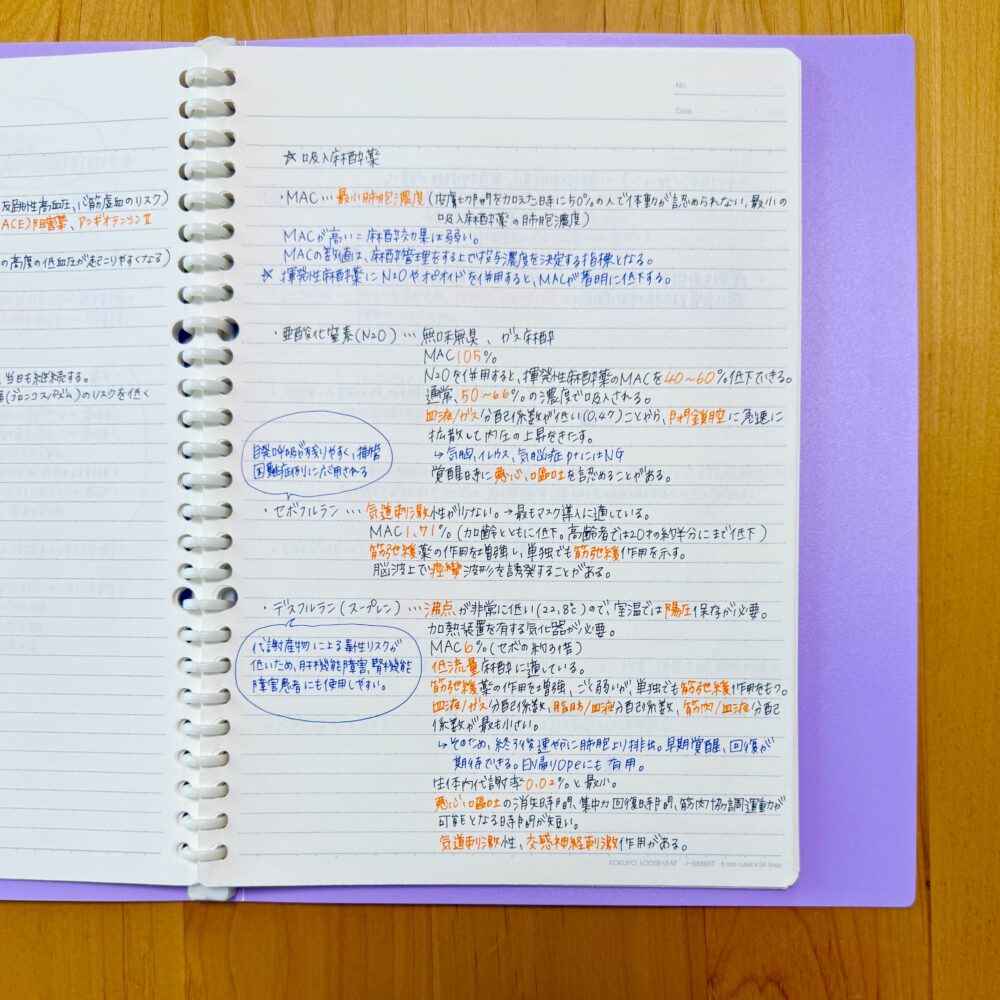 反跳性高血圧、心筋虚血のリスク)
ACE)阻害薬、アンギオテンシンⅡ
の高度の低血圧が起こりやすくなる)
、当日も継続する。
(ブロンコスパズム)のリスクを低く
No.
Date
☆ 吸入麻酔薬
・MAC … 最小肺胞濃度 (皮膚切開を加えた時に50%の人で体動が認められない、最小の
吸入麻酔薬の肺胞濃度)
MACが高い = 麻酔効果は弱い。
MACの数値は、麻酔管理をする上で投与濃度を決定する指標となる。
☆ 揮発性麻酔薬にN2Oやオピオイドを併用すると、MACが著明に低下する。
・亜酸化窒素(N2O) … 無味無臭、ガス麻酔
MAC105%
N2Oを併用すると、揮発性麻酔薬のMACを40〜60%低下できる。
通常、50〜66%の濃度で吸入される。
血液/ガス分配係数が低い(0.47)ことから、閉鎖腔に急速に
拡散して内圧の上昇をきたす。
↳ 気胸、イレウス、気脳症などにはNG
覚醒時に悪心、嘔吐を認めることがある。
自発呼吸が残りやすく、挿管
困難症例に応用される
・セボフルラン … 気道刺激性が少ない。→最もマスク導入に適している。
MAC1.71% (加齢とともに低下。高齢者では20才の約半分にまで低下)
筋弛緩薬の作用を増強し、単独でも筋弛緩作用を示す。
脳波上で痙攣波形を誘発することがある。
・デスフルラン(スープレン) … 沸点が非常に低い(22.8℃)ので、室温では陽圧保存が必要。
加熱装置を有する気化器が必要。
MAC6%(セボの約3倍)
低流量麻酔に適している。
代謝産物による毒性リスクが
低いため、肝機能障害、腎機能
障害患者にも使用しやすい。
筋弛緩薬の作用を増強、ごく弱いが、単独でも筋弛緩作用をもつ。
血液/ガス分配係数、脂肪/血液分配係数、筋肉/血液分配
係数が最も小さい。
↳ そのため、終了後速やかに肺胞より排出。早期覚醒、回復が
期待できる。日帰りopeにも有用。
生体内代謝率0.02%と最小。
悪心、嘔吐の消失時間、集中力回復時間、筋肉協調運動が
可能となる時間が短い。
気道刺激性、交感神経刺激作用がある。
KOKUYO LOOSE-LEAF ノ-S836BT 6 mm ruled×38 lines